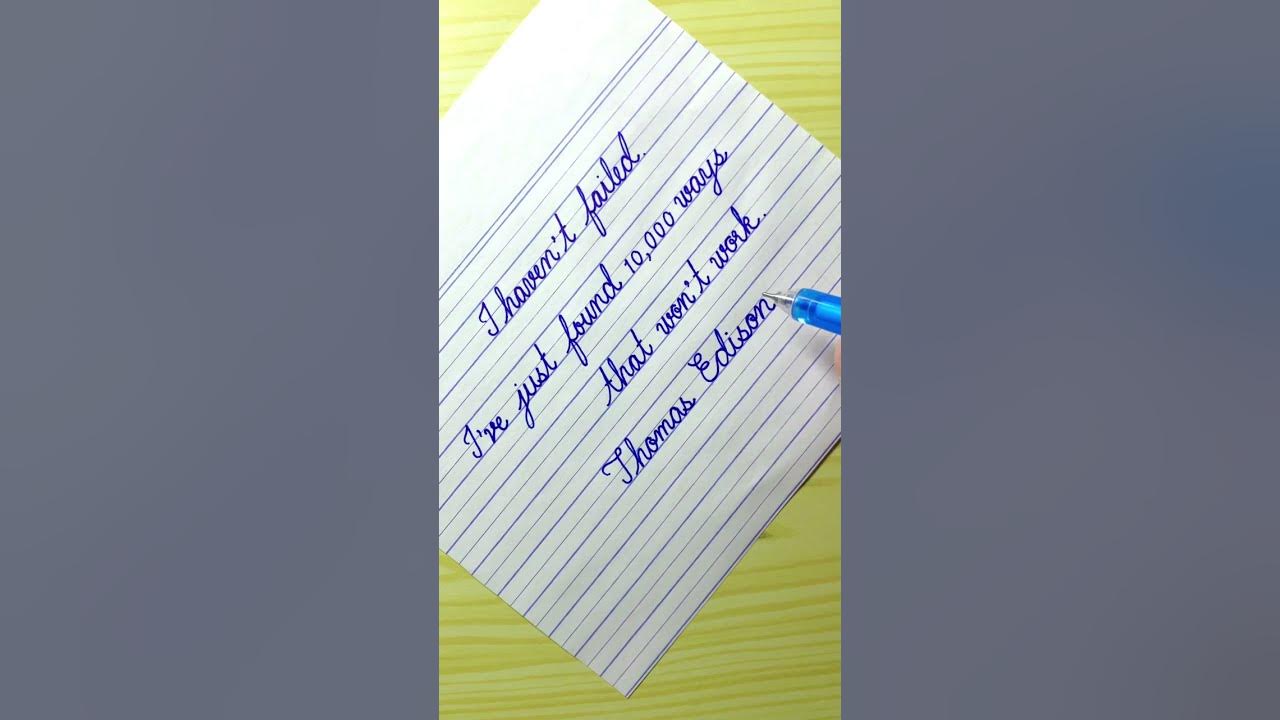 I haven't failed.
I've just found 10,000 ways
that won't work.
Thomas Edison